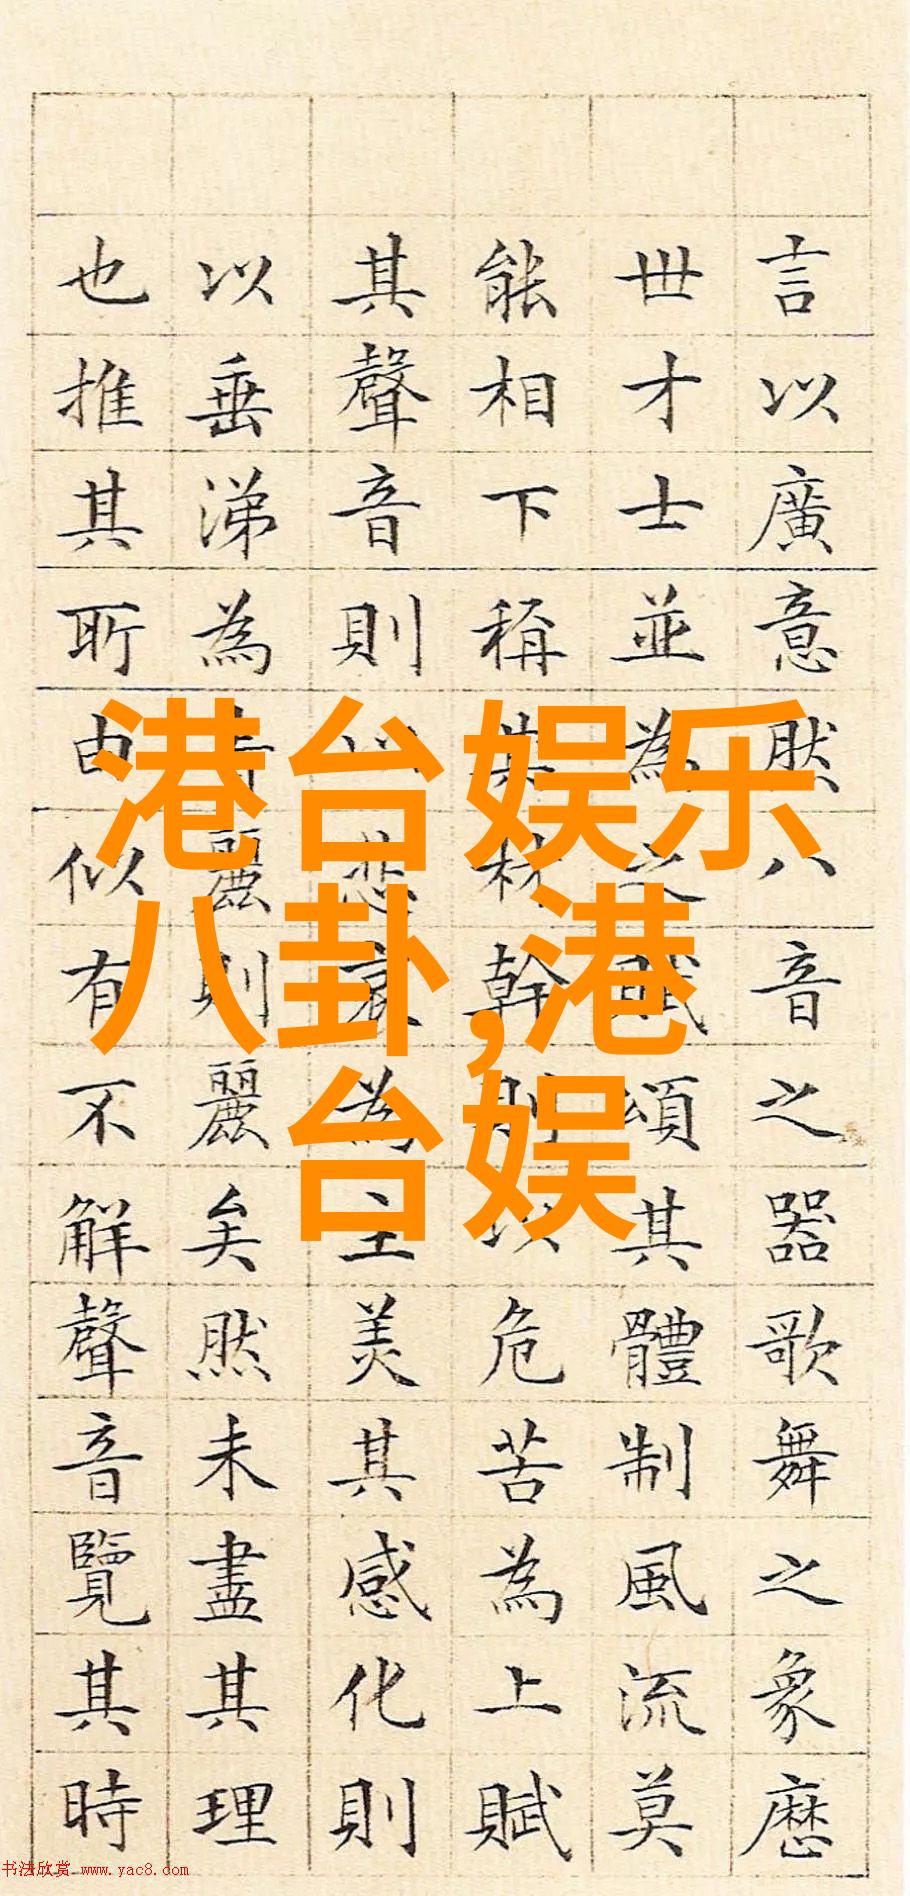 言以廣意然八音之器歌舞之象歷
世才士並為之賦頌其體制風流莫
能相下稱其材幹則以危苦為上賦
其聲音則以悲哀為主美其感化則
以垂涕為貴麗則麗矣然未盡其理
也推其所由似有不解聲音覽其時
港台娱乐
八卦,港
台娱
书法欣赏 www.yac8.com